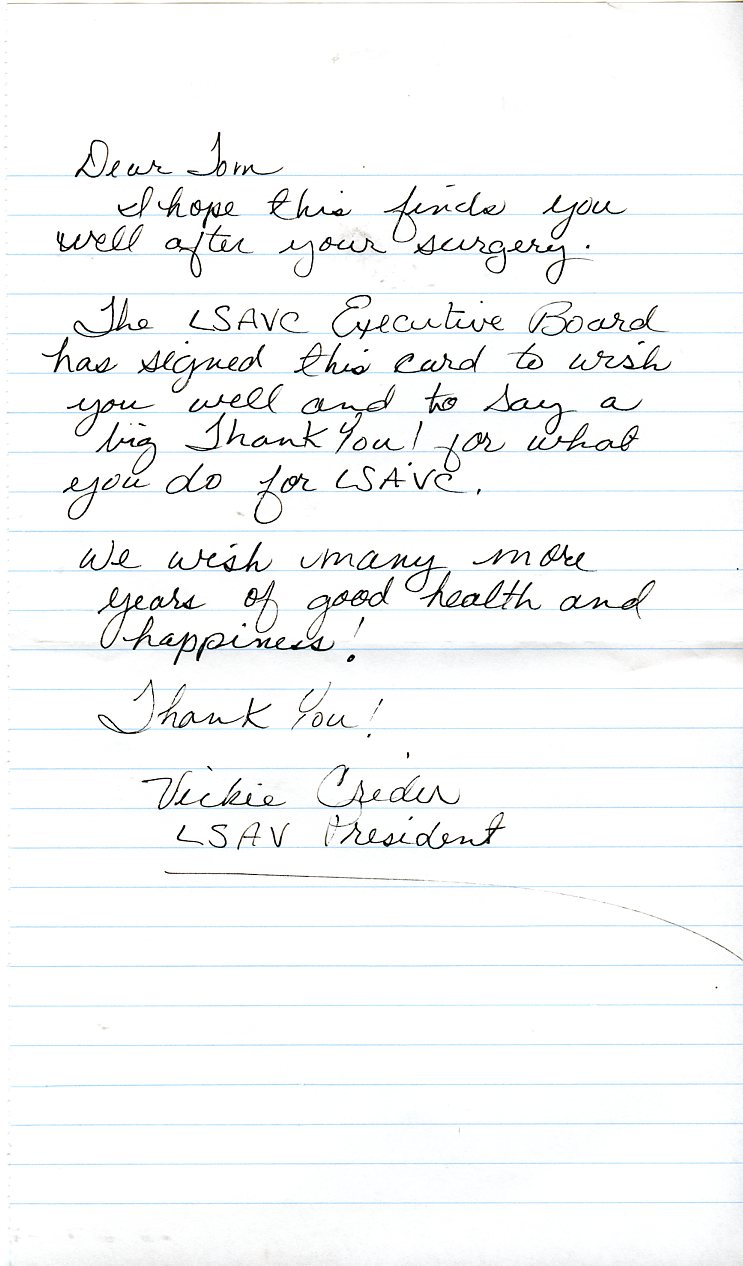 Dear Tom
I hope this finds you
well after your surgery.
The LSAVC Executive Board
has signed this card to wish
you well and to say a
big Thank You! for what
you do for LSAVC.
We wish many more
years of good health and
happiness!
Thank You!
Vickie Crider
LSAV President